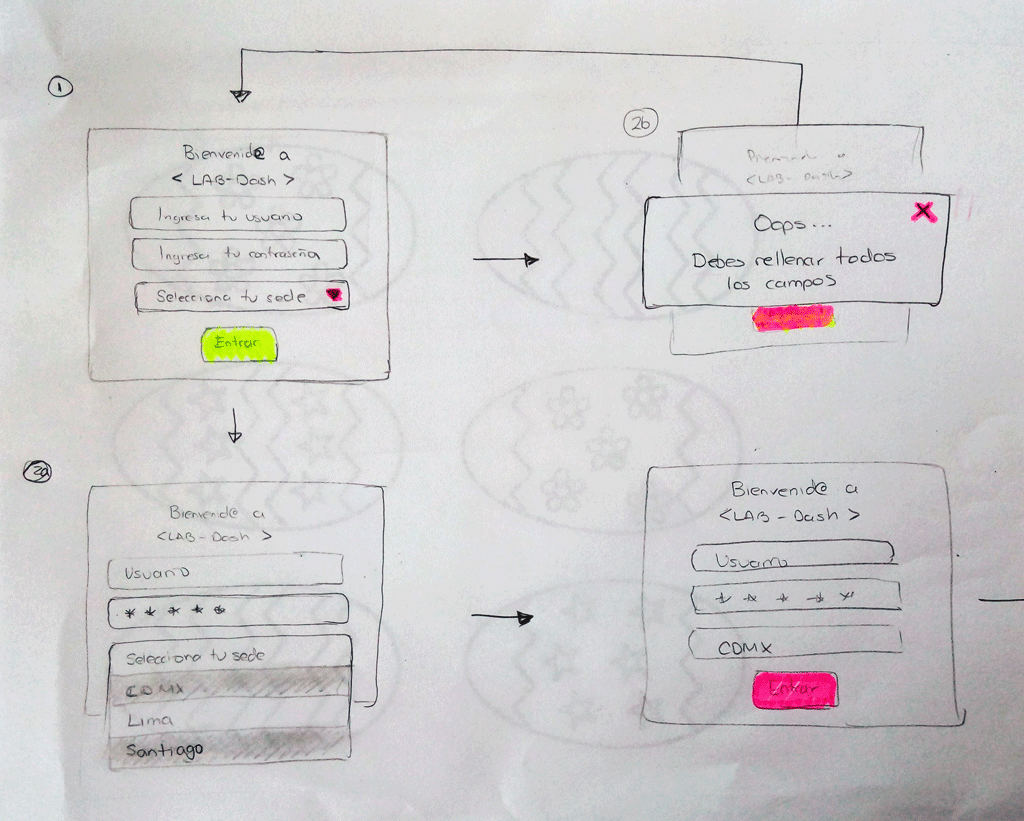 1
Bienvenid@ a
< LAB-Dash >
Ingresa tu usuario
Ingresa tu contraseña
Selecciona tu sede
Entrar
2b
<LAB-Dash>
X
Oops...
Debes rellenar todos
los campos
Bienvenid@ a
<LAB-Dash >
Usuario
* * * * *
Selecciona tu sede
CDMX
Lima
Santiago
Bienvenid@ a
<LAB-Dash >
Usuario
* * * * *
CDMX
Entrar